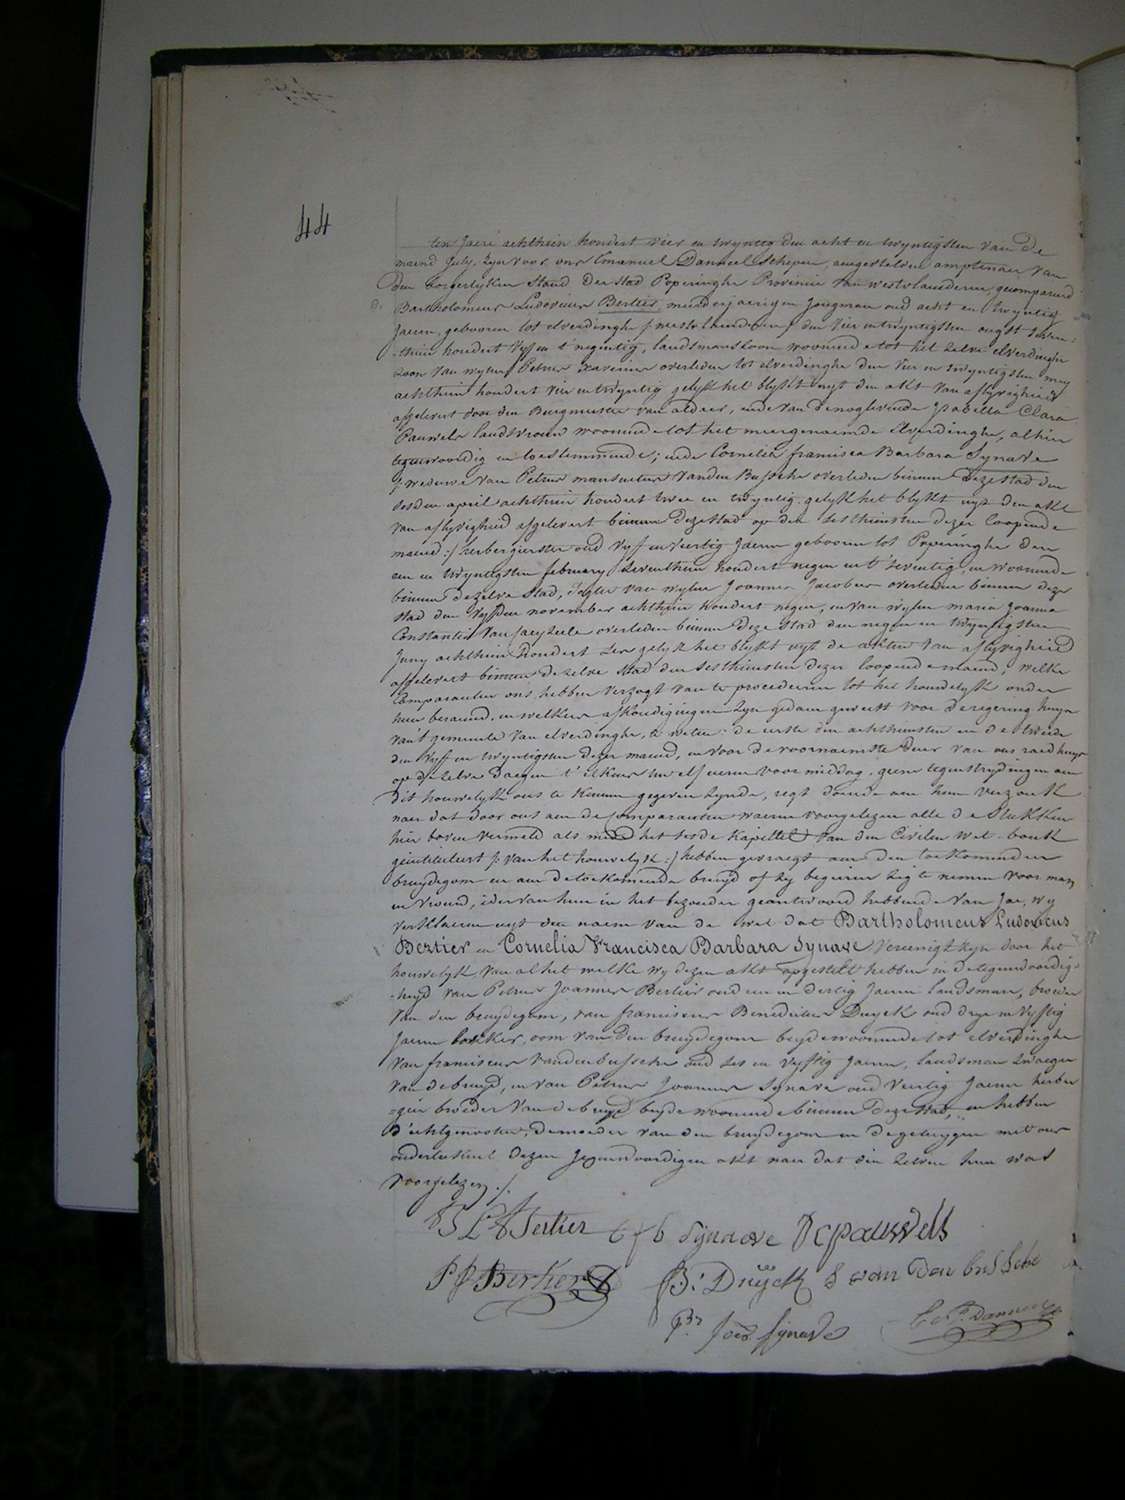 44
ten Jaere achthien hondert vier en twyntig den acht en twyntigsten van de
maend July, zyn voor ons Emanuel Danneel Schepen, aengestelden amptenaer van
den borgerlyken Stand der stad Poperinghe Provincie van westvlaenderen, gecompareerd
Bartholomeus Ludovicus Bertier, meerderjaerigen Jongman oud acht en twyntig
Jaeren, gebooren tot elverdinghe /: westvlaenderen :/ den vier en twyntigsten ougst seven-
-thien hondert vyf en t'negentig, landsmans zoon woonende tot het zelve elverdinghe
zoon van wylen Petrus Xaverius overleden tot elverdinghe den vier en twyntigsten mey
achthien hondert vier en twyntig gelyk het blykt uyt den akt van aflyvigheid
afgelevert door den Burgmeester van aldaer, ende van denoglevende Isabella Clara
Pauwels landsvrouw woonende tot het meergenaemde Elverdinghe, alhier
tegenwoordig en toestemmende; ende Cornelia francisca Barbara Synave
/: weduwe van Petrus mansuetus Vanden Bussche overleden binnen deze stad den
sesden april achthien hondert twee en twyntig gelyk het blykt uyt den akt
van aflyvigheid afgelevert binnen deze stad op den sesthiensten dezer loopende
maend :/ herbergierster oud vyf en veertig Jaeren gebooren tot Poperinghe den
een en twyntigsten february seventhien hondert negen en t'seventig, en woonende
binnen dezelve stad, dogter van wylen Joannes Jacobus overleden binnen deze
stad den vyfden november achthien hondert negen, en van wylen maria Joanna
Constantia Van Jaeyseele overleden binnen deze stad den negen en twyntigsten
Juny achthien hondert zes gelyk het blykt uyt de akten van aflyvigheid
afgelevert binnen dezelve stad den sesthiensten dezer loopende maend; welke
Comparanten ons hebben verzogt van te procederen tot het houwelyk onder
hun beraemd, en welkers afkondigingen zyn gedaen geweest voor de regering huyse
van't gemeente van elverdinghe, te weten: de eerste den achthiensten en de tweede
den vyf en twyntigsten dezer maend, en voor de voornaemste deur van ons raedhuys
op dezelve daegen t'elkens ten elf ueren voormiddag, geene tegenstrydingen aen
dit houwelyk ons te kennen gegeven zynde, regt doende aen hun verzoek
naer dat door ons aen de Comparanten waeren voorgelezen alle de stukken
hier boven vermeld als mede het sesde kapittel van den Civilen wet-bouk
geïntituleert /: van het houwelyk :/ hebben gevraegt aen den toekomenden
bruydegom en aen de toekomende bruyd of zy begeiren zig te nemen voor man
en vrouw, ider van hun in het bezonder geantwoord hebbende van Jae, wy
verklaeren uyt den naem van de wet dat Bartholomeus Ludovicus
Bertier en Cornelia Francisca Barbara Synave Vereenigt zyn door het
houwelyk van al het welke wy dezen akt opgestelt hebben in de tegenwoordig-
-heyd van Petrus Joannes Bertier oud een en dertig Jaeren landsman, broeder
van den bruydegom, van franciscus Benedictus Duyck oud dry en vyftig
Jaeren bakker, oom van den bruydegom beyde woonende tot elverdinghe
van franciscus vandenbussche oud ses en vyftig Jaeren, landsman zwaeger
van de bruyd, en van Petrus Joannes Synave oud veertig Jaeren herber
-gier broeder van de bruyd beyde woonende binnen deze stad, en hebben
d'echtgenoten, de moeder van den bruydegom en de getuygen met ons
onderteekent dezen jegenwoordigen akt naer dat die zelven hun was
voorgelezen ./.
B L Bertier C f b Synave I C pauwels
P J Bertier B: Duÿck F van den bussche
P:rs Joës Synave Em. Danneel